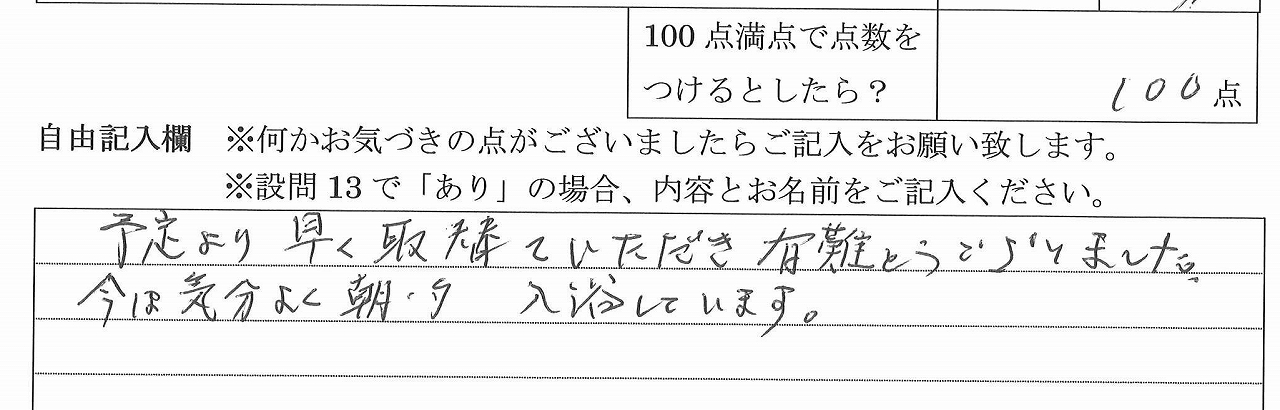 100点満点で点数を
つけるとしたら？
100点
自由記入欄 ※何かお気づきの点がございましたらご記入をお願い致します。
※設問13で「あり」の場合、内容とお名前をご記入ください。
予定より早く取替ていただき有難とうございました。
今は気分よく朝・夕 入浴しています。